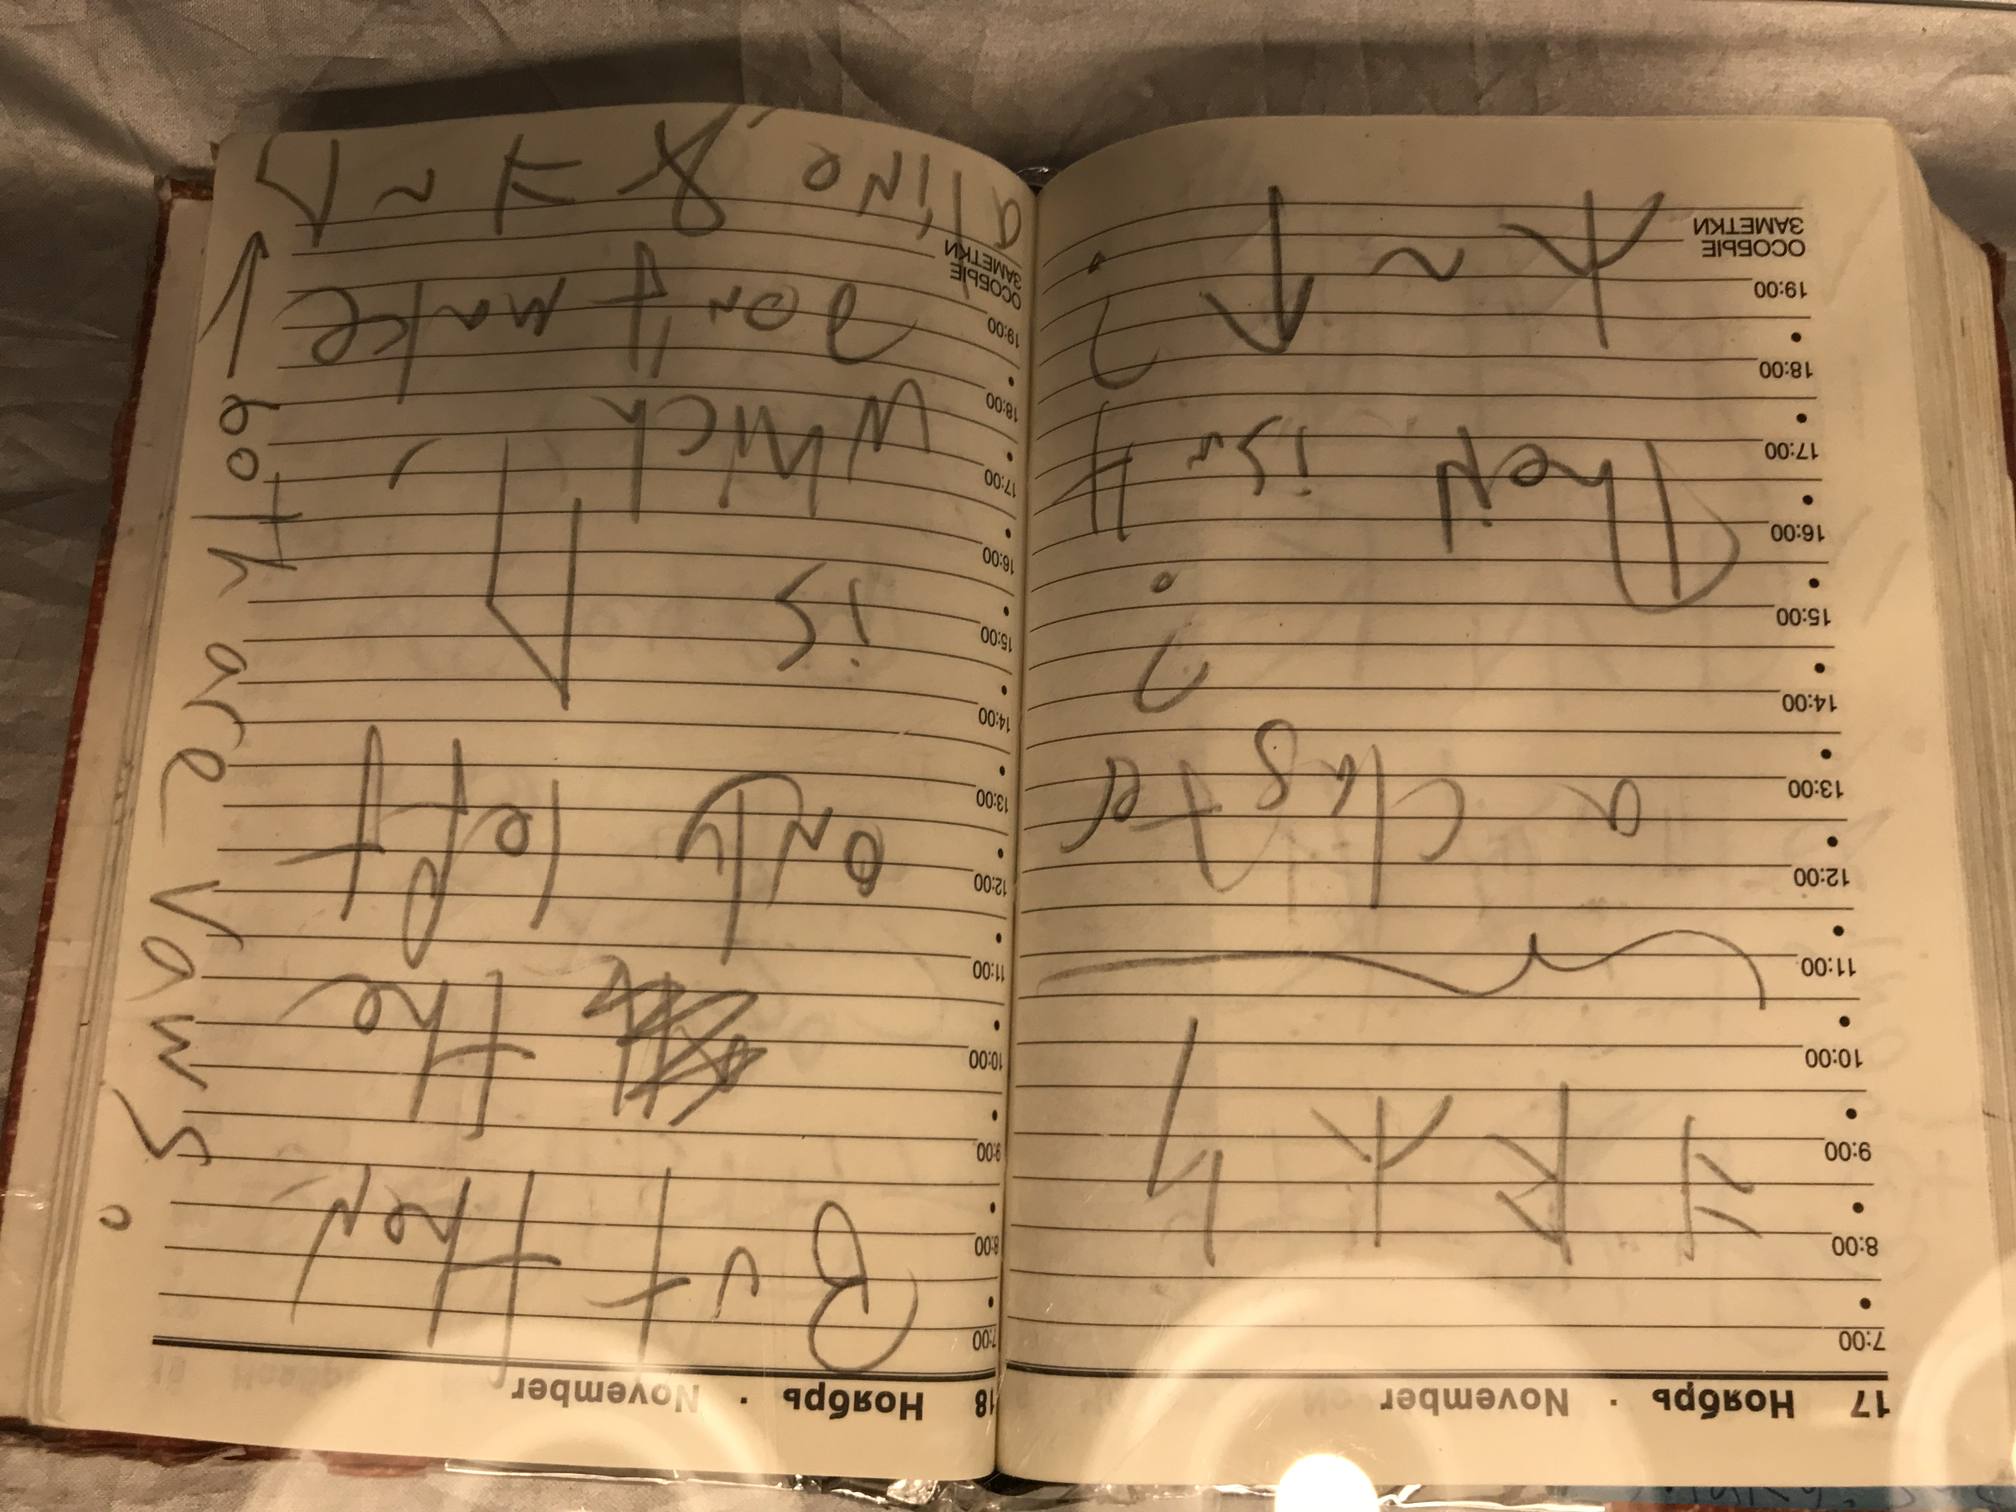 17 Ноябрь · November
7:00
8:00
9:00
10:00
11:00
12:00
13:00
14:00
15:00
16:00
17:00
18:00
19:00
ОСОБЫЕ
ЗАМЕТКИ
a cluster
?
then isn't
?
18 Ноябрь · November
7:00
8:00
9:00
10:00
11:00
12:00
13:00
14:00
15:00
16:00
17:00
18:00
19:00
ОСОБЫЕ
ЗАМЕТКИ
But then
the
only left
is
which
don't make
a line,
are